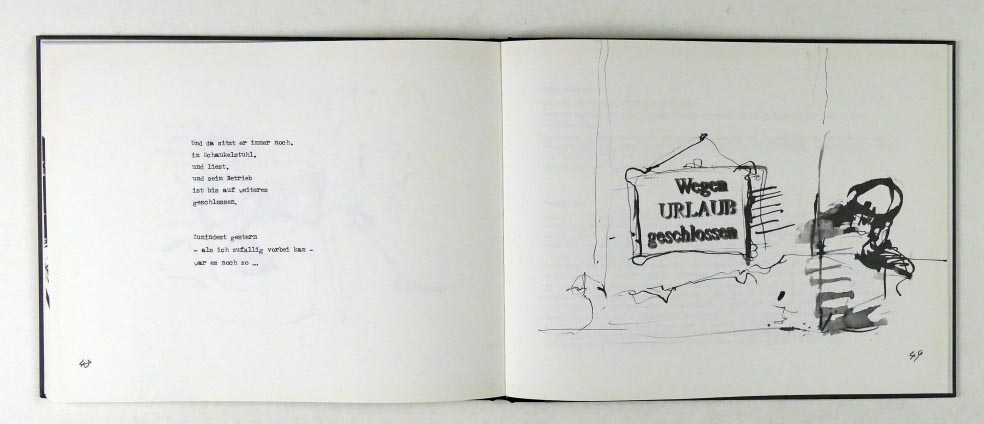 Und da sitzt er immer noch,
im Schaukelstuhl,
und liest,
und sein Betrieb
ist bis auf weiteres
geschlossen.
Zumindest gestern
- als ich zufällig vorbei kam -
war es noch so ...
48
Wegen
URLAUB
geschlossen
49